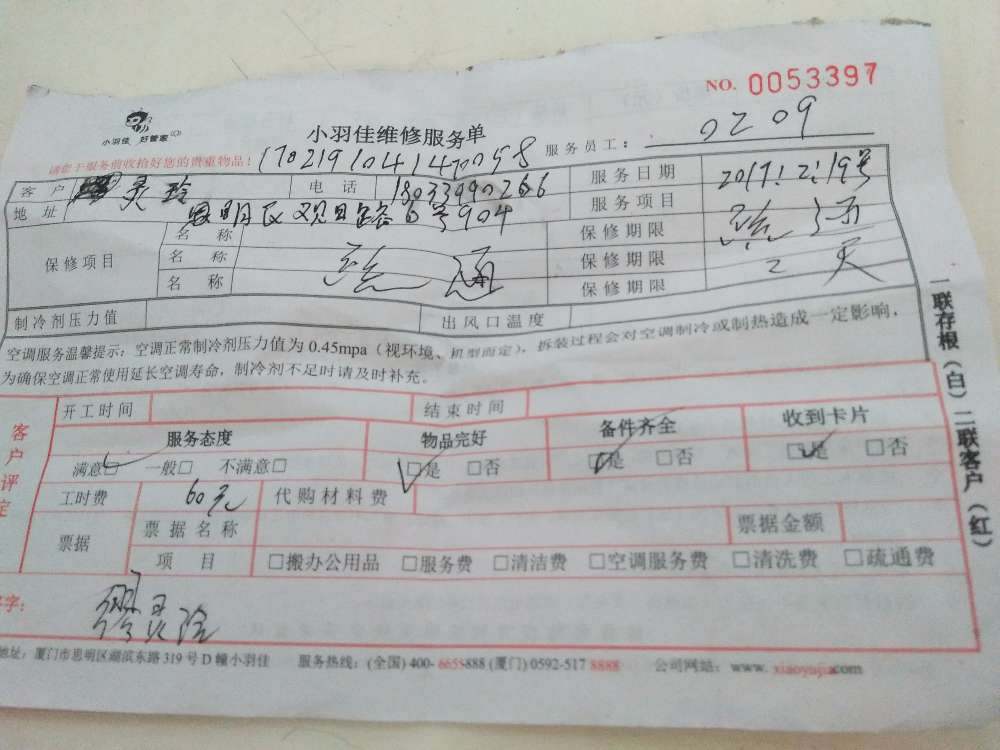 NO. 0053397
小羽佳 好管家
小羽佳维修服务单
服务员工: 0209
请您于服务前收拾好您的贵重物品!
客户 灵玲 电话 服务日期 2017.2.19号
地址 思明区观日路6号904 服务项目 疏通
保修项目 名称 疏通 保修期限
名称 保修期限 2天
名称 保修期限
制冷剂压力值 出风口温度
空调服务温馨提示: 空调正常制冷剂压力值为 0.45mpa (视环境、机型而定), 拆装过程会对空调制冷或制热造成一定影响,
为确保空调正常使用延长空调寿命, 制冷剂不足时请及时补充。
一联存根(白)二联客户(红)
客户评定
开工时间 结束时间
服务态度 物品完好 备件齐全 收到卡片
满意□ 一般□ 不满意□ □是 □否 □是 □否 □是 □否
工时费 60元 代购材料费
票据 票据名称 票据金额
项目 □搬办公用品 □服务费 □清洁费 □空调服务费 □清洗费 □疏通费
字: 缪灵玲
地址: 厦门市思明区湖滨东路 319 号 D 幢小羽佳 服务热线: (全国) 400-6655888 (厦门) 0592-517 8888 公司网站: www.xiaoyujia.com